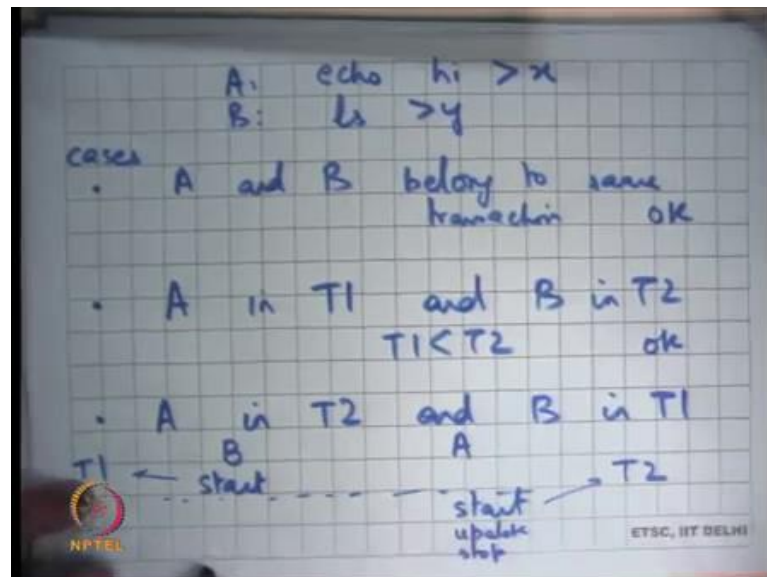 A: echo hi >x
B: ls >y
cases
. A and B belong to same
transaction OK
. A in T1 and B in T2
T1<T2 ok
. A in T2 and B in T1
B A
T1 ← start T2
start
update
stop
NPTEL
ETSC, IIT DELHI